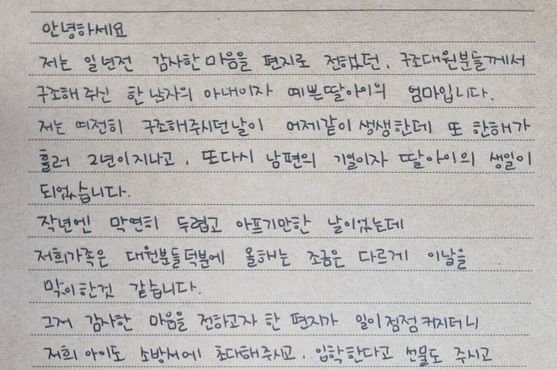 안녕하세요
저는 일년전 감사한 마음을 편지로 전했던, 구조대원분들께서
구조해 주신 한 남자의 아내이자 예쁜딸아이의 엄마입니다.
저는 여전히 구조해주시던날이 어제같이 생생한데 또 한해가
흘러 2년이지나고, 또다시 남편의 기일이자 딸아이의 생일이
되었습니다.
작년엔 막연히 두렵고 아프기만한 날이었는데
저희가족은 대원분들덕분에 올해는 조금은 다르게 이날을
맞이한것 같습니다.
그저 감사한 마음을 전하고자 한 편지가 일이점점커지더니
저희 아이도 소방서에 초대해주시고, 입학한다고 선물도 주시고